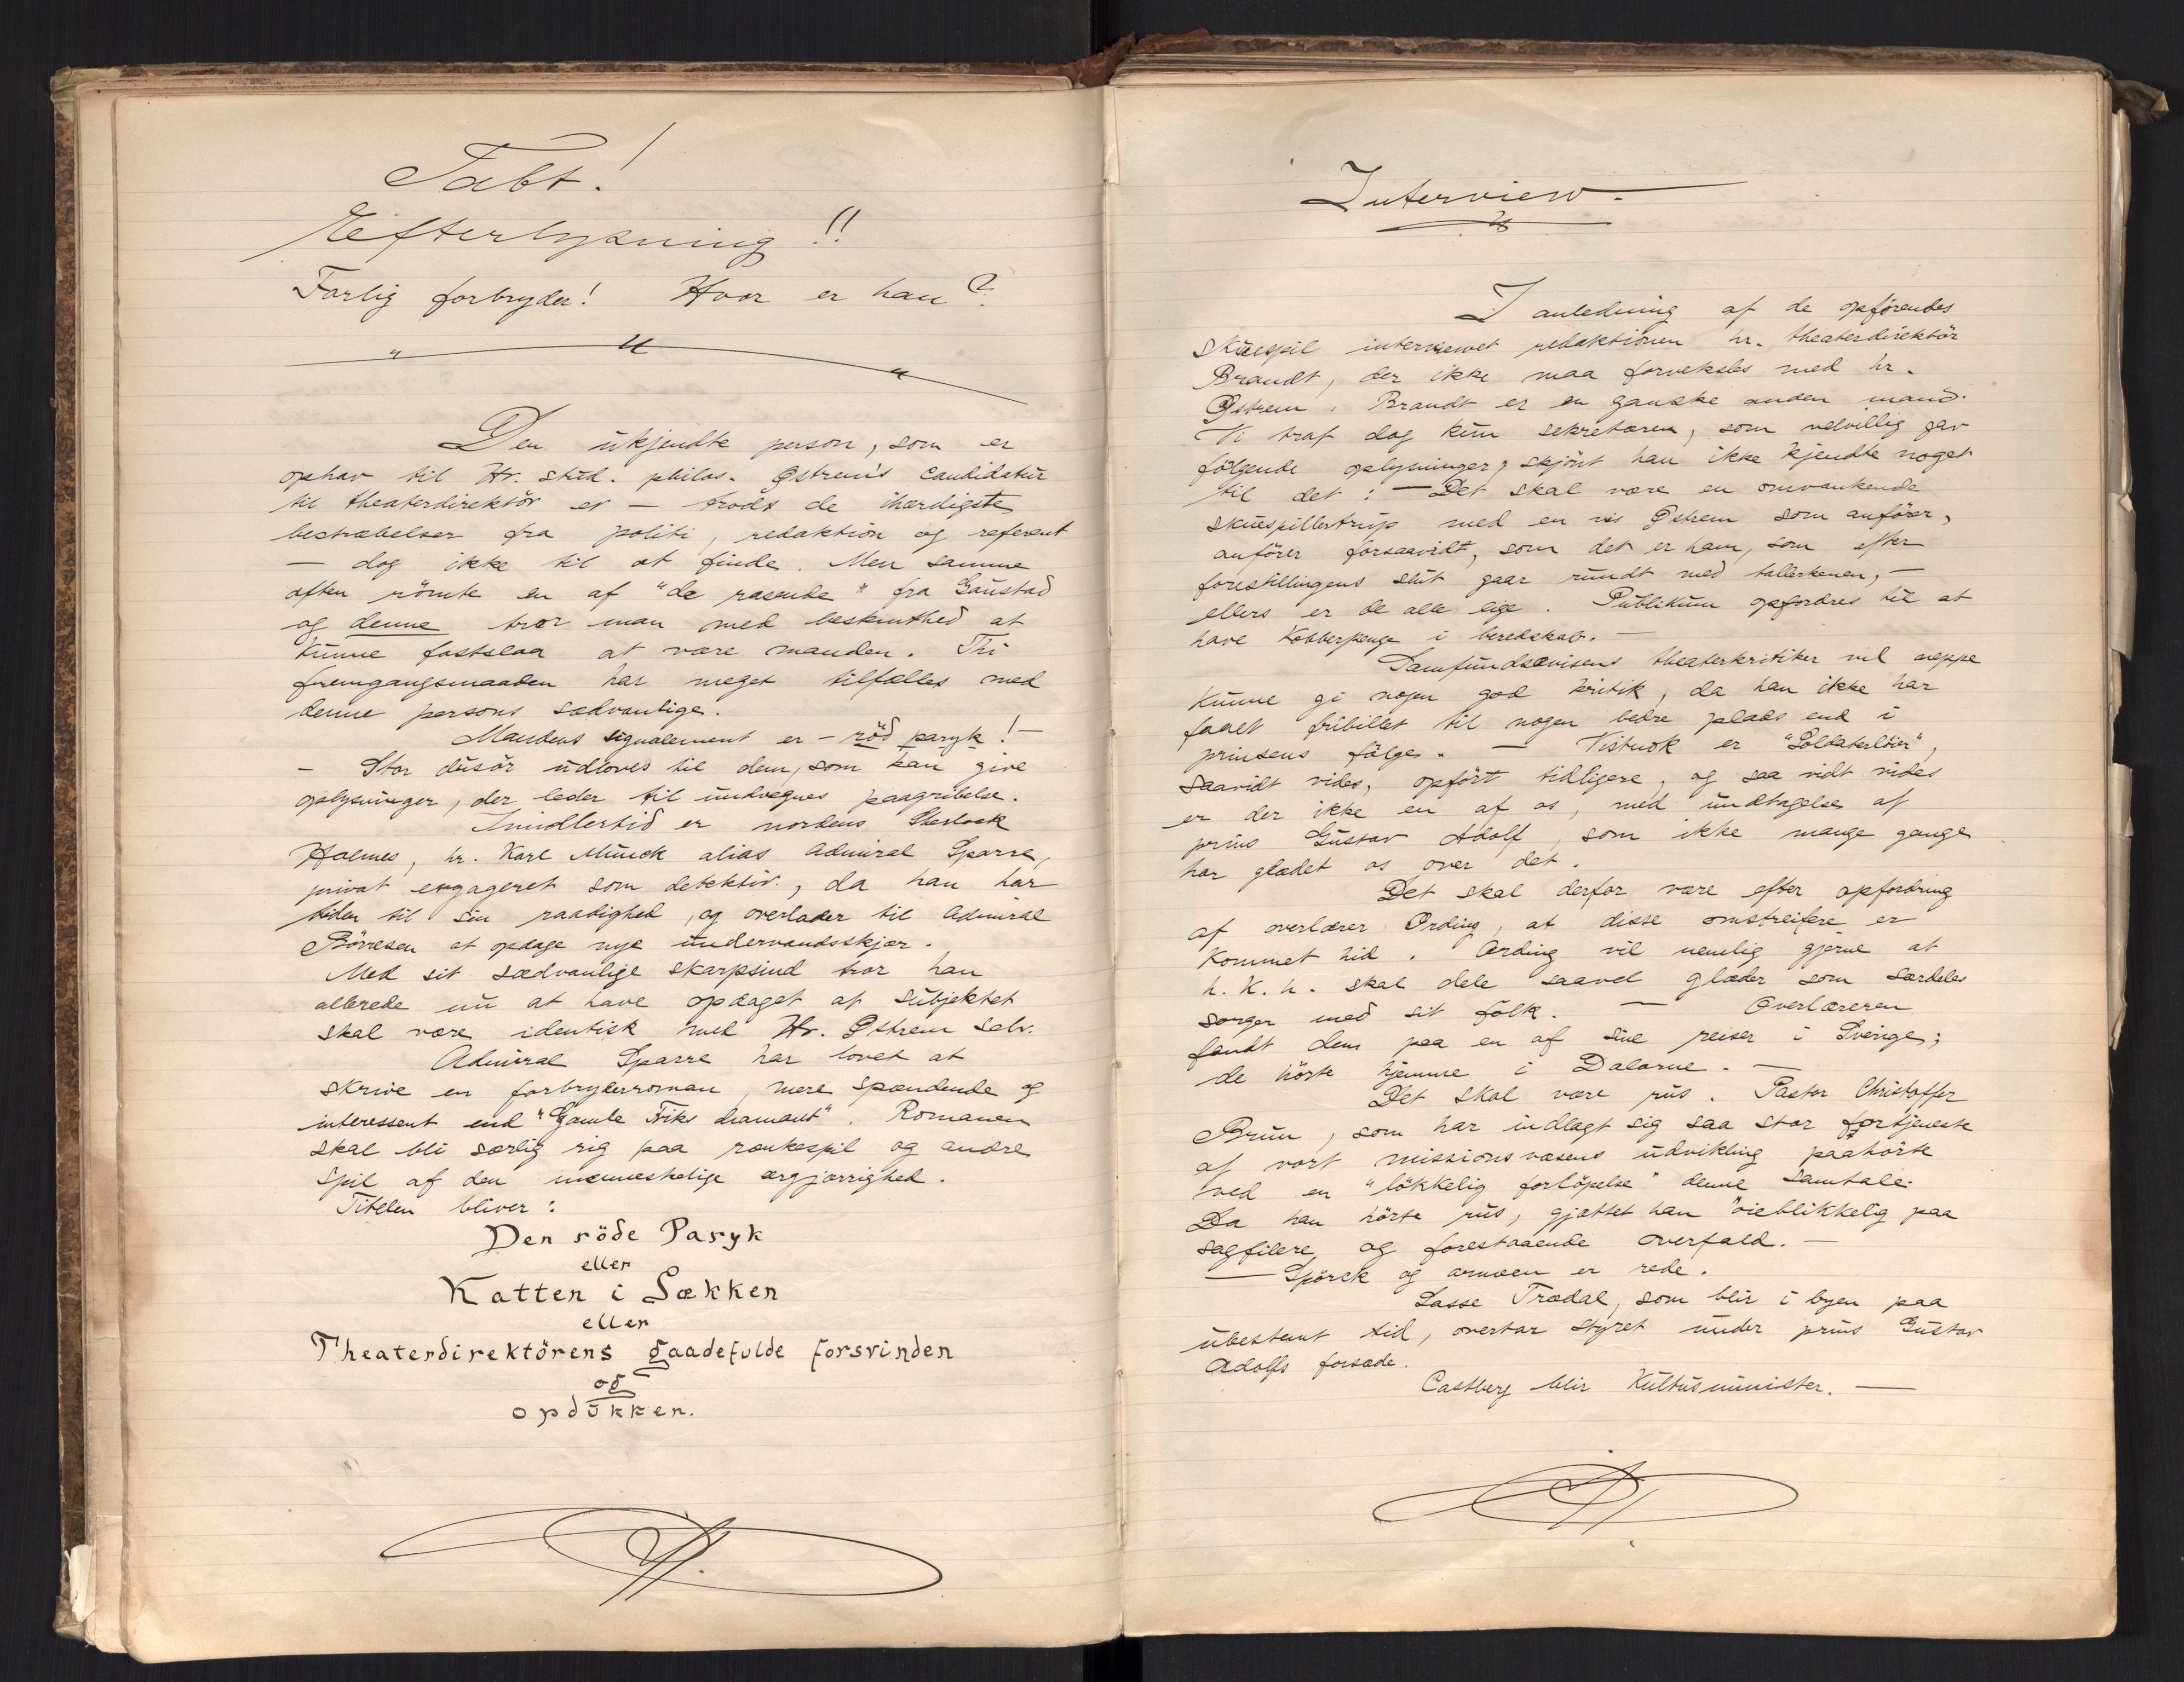 Tabt!
Efterlysning!!
Farlig forbryder! Hvor er han?
Den ukjendte person, som er
ophav til Hr. stud. philos. Østrem's Candidatur
til theaterdirektör er — trods de ihærdigste
bestræbelser fra politi, redaktion og referent
— dog ikke til at finde. Men samme
aften römte en af "de rasende" fra Gaustad
og denne tror man med bestemthed at
kunne fastslaa at være manden. Thi
fremgangsmaaden har meget tilfælles med
denne persons sædvanlige.
Mandens signalement er — röd paryk! —
— Stor dusör udloves til dem, som kan give
oplysninger, der leder til undvegnes paagribelse.
Imidlertid er nordens Sherlock
Holmes, hr. Karl Munck alias Admiral Sparre,
privat engageret som detektiv, da han har
tiden til sin raadighed, og overlader til Admiral
Börresen at opdage nye undervandsskjær.
Med sit sædvanlige skarpsind tror han
allerede nu at have opdaget at subjektet
skal være identisk med Hr. Østrem selv.
Admiral Sparre har lovet at
skrive en forbryderroman, mere spændende og
interessent end "Gamle Fiks diamant". Romanen
skal bli særlig rig paa rænkespil og andre
spil af den menneskelige ærgjærrighed.
Titelen bliver:
Den röde Paryk
eller
Katten i Sækken
eller
Theaterdirektörens gaadefulde forsvinden
og
opdukken.
Interview.
I anledning af de opförendes
skuespil interviewet redaktionen hr. theaterdirektör
Brandt, der ikke maa forveksles med hr.
Østrem. Brandt er en ganske anden mand.
Vi traf dog kun sekretæren, som velvillig gav
fölgende oplysninger, skjönt han ikke kjendte noget
til det: — Det skal være en omvankende
skuespillertrup med en vis Østrem som anförer,
anförer forsaavidt, som det er ham, som efter
forestillingens slut gaar rundt med tallerkenen, —
ellers er de alle lige. Publikum opfordres til at
have Kobberpenge i beredskab. —
Samfundsavisens theaterkritiker vil neppe
kunne gi nogen god kritik, da han ikke har
faaet fribillet til nogen bedre plads end i
prinsens fölge. — Vistnok er "Soldaterlöier",
saavidt vides, opfört tidligere, og saa vidt vides
er der ikke en af os, med undtagelse af
prins Gustav Adolf, som ikke mange gange
har glædet os over det.
Det skal derfor være efter opfordring
af overlærer Ording, at disse omstreifere er
kommet hid. Ording vil nemlig gjerne at
h. K. h. skal dele saavel glæder som særdeles
sorger med sit folk. — Overlæreren
fandt dem paa en af sine reiser i Sverige;
de hörte hjemme i Dalarne. —
Det skal være rus. Pastor Christoffer
Brun, som har indlagt sig saa stor fortjeneste
af vort missionsvæsens udvikling paahörte
ved en "lökkelig forlöpelse" denne samtale.
Da han hörte rus, gjættet han öieblikkelig paa
sagfilere og forestaaende overfald. —
— Spörck og armeen er rede.
Lasse Trædal, som blir i byen paa
ubestemt tid, overtar styret under prins Gustav
Adolfs forsæde.
Castberg blir Kultusminister. —